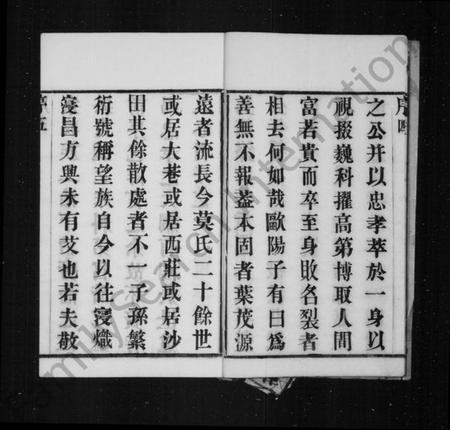 序四
之公并以忠孝萃於一身以
視掇巍科擢高第博取人間
富若貴而卒至身敗名裂者
相去何如哉歐陽子有曰為
善無不報葢本固者葉茂源
遠者流長今莫氏二十餘世
或居大巷或居西莊或居沙
田其餘散處者不一子孫繁
衍號稱望族自今以往寖熾
寖昌方興未有艾也若夫敬
序五
FamilySearch International